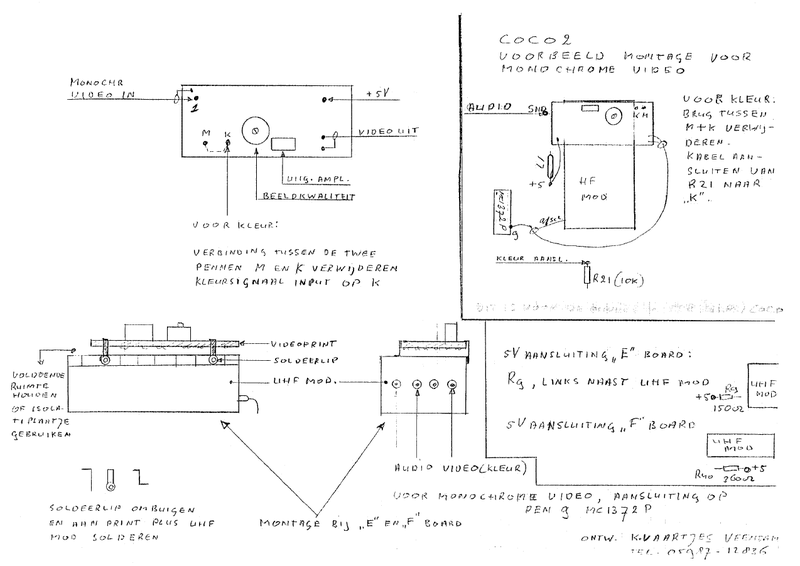 MONOCHR
VIDEO IN
1
M K
+5V
VIDEO UIT
UITG. AMPL.
BEELDKWALITEIT
VOOR KLEUR:
VERBINDING TUSSEN DE TWEE
PENNEN M EN K VERWIJDEREN
KLEURSIGNAAL INPUT OP K
COCO2
VOORBEELD MONTAGE VOOR
MONOCHROME VIDEO
AUDIO
K M
+5
HF
MOD
MC1372P
9
VOOR KLEUR:
BRUG TUSSEN
M+K VERWIJ-
DEREN.
KABEL AAN-
SLUITEN VAN
R21 NAAR
„K".
KLEUR AANSL.
R21 (10K)
COCO
VIDEOPRINT
SOLDEERLIP
UHF MOD.
VOLDOENDE
RUIMTE
HOUDEN
OF ISOLA-
TIPLAATJE
GEBRUIKEN
SOLDEERLIP OMBUIGEN
EN AAN PRINT PLUS UHF
MOD SOLDEREN
MONTAGE BIJ „E" EN „F" BOARD
AUDIO VIDEO (KLEUR)
5V AANSLUITING „E" BOARD:
R9, LINKS NAAST UHF MOD
+5 R9
150Ω
UHF
MOD
5V AANSLUITING „F" BOARD
UHF
MOD
R40 +5
260Ω
VOOR MONOCHROME VIDEO, AANSLUITING OP
PEN 9 MC1372P
ONTW. K.VAARTJES VEENDAM
TEL. 05987-12836